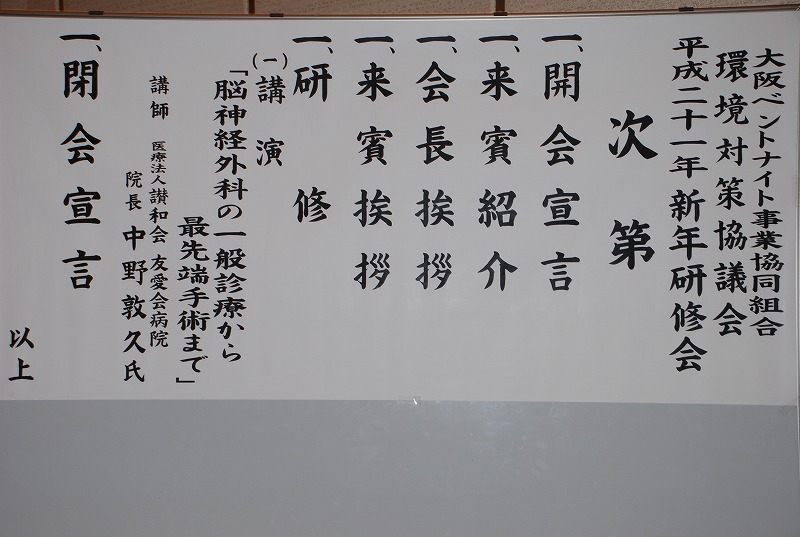 大阪ベントナイト事業協同組合
環境対策協議会
平成二十一年新年研修会
次第
一、開会宣言
一、来賓紹介
一、会長挨拶
一、来賓挨拶
一、研修
(一)講演
「脳神経外科の一般診療から
最先端手術まで」
講師 医療法人讃和会 友愛会病院
院長 中野敦久氏
一、閉会宣言
以上